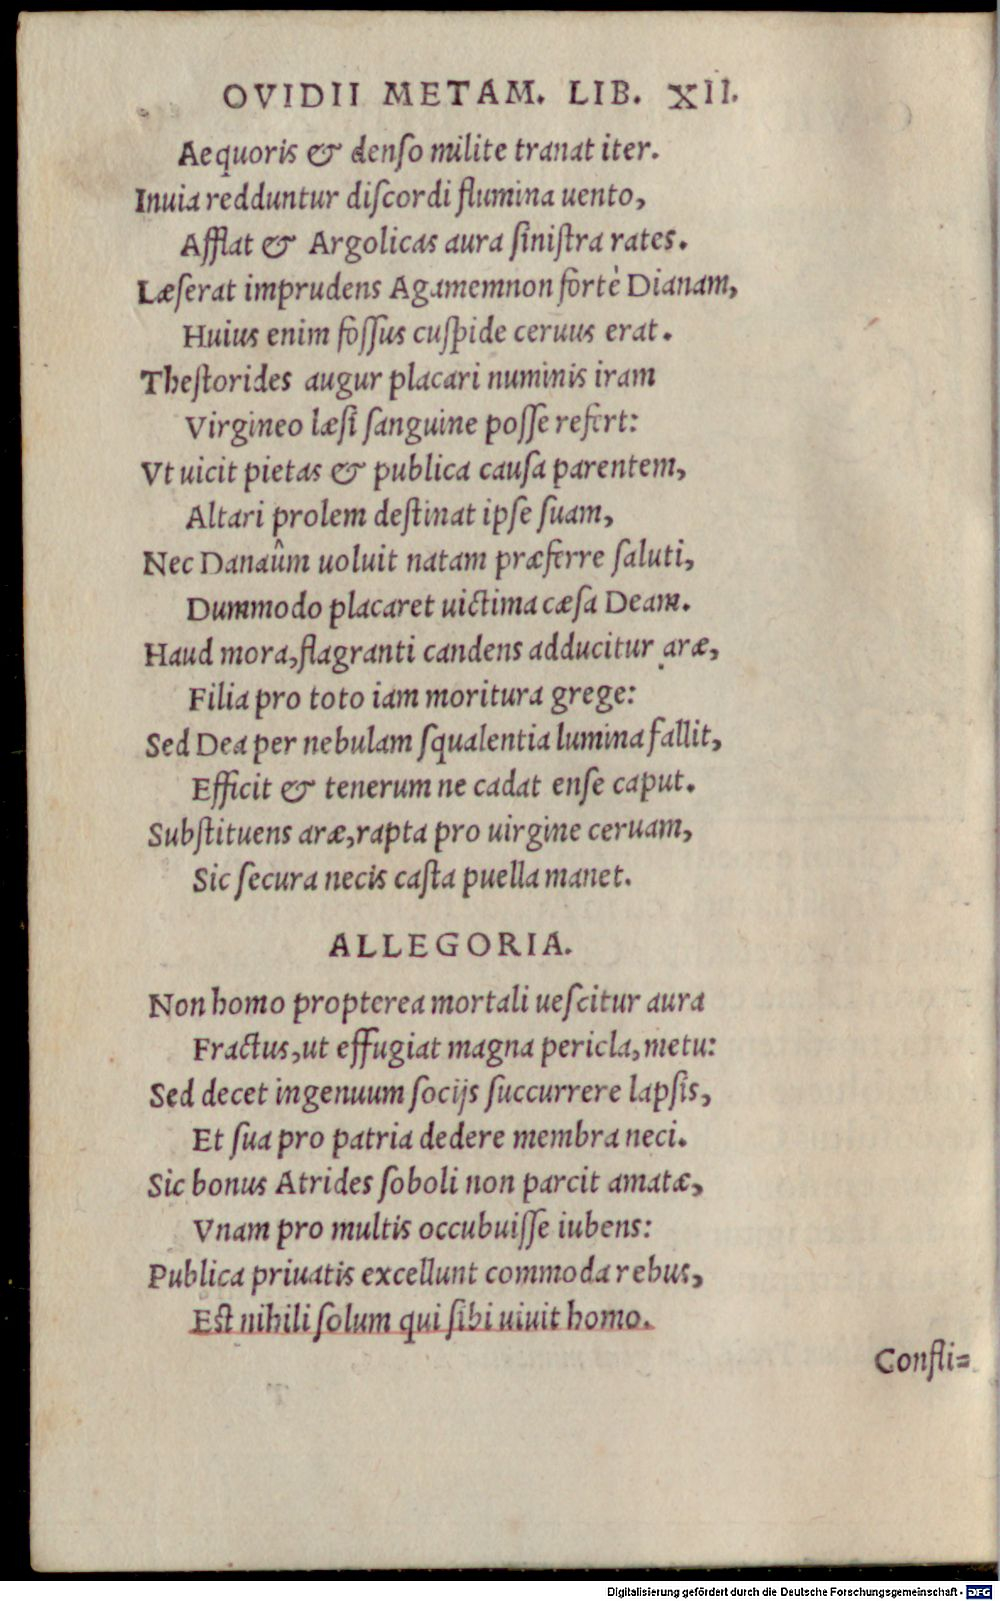 OVIDII METAM. LIB. XII.
Aequoris & denſo milite tranat iter.
Inuia redduntur diſcordi flumina uento,
Afflat & Argolicas aura ſiniſtra rates.
Læſerat imprudens Agamemnon fortè Dianam,
Huius enim foſſus cuſpide ceruus erat.
Theſtorides augur placari numinis iram
Virgineo læſi ſanguine poſſe refert:
Vt uicit pietas & publica cauſa parentem,
Altari prolem deſtinat ipſe ſuam,
Nec Danaûm uoluit natam præferre ſaluti,
Dummodo placaret uictima cæſa Deam.
Haud mora, flagranti candens adducitur aræ,
Filia pro toto iam moritura grege:
Sed Dea per nebulam ſqualentia lumina fallit,
Efficit & tenerum ne cadat enſe caput.
Subſtituens aræ, rapta pro uirgine ceruam,
Sic ſecura necis caſta puella manet.
ALLEGORIA.
Non homo propterea mortali ueſcitur aura
Fractus, ut effugiat magna pericla, metu:
Sed decet ingenuum ſocijs ſuccurrere lapſis,
Et ſua pro patria dedere membra neci.
Sic bonus Atrides ſoboli non parcit amatæ,
Vnam pro multis occubuiſſe iubens:
Publica priuatis excellunt commoda rebus,
Eſt nihili ſolum qui ſibi uiuit homo.
Confli=
Digitalisierung gefördert durch die Deutsche Forschungsgemeinschaft - DFG